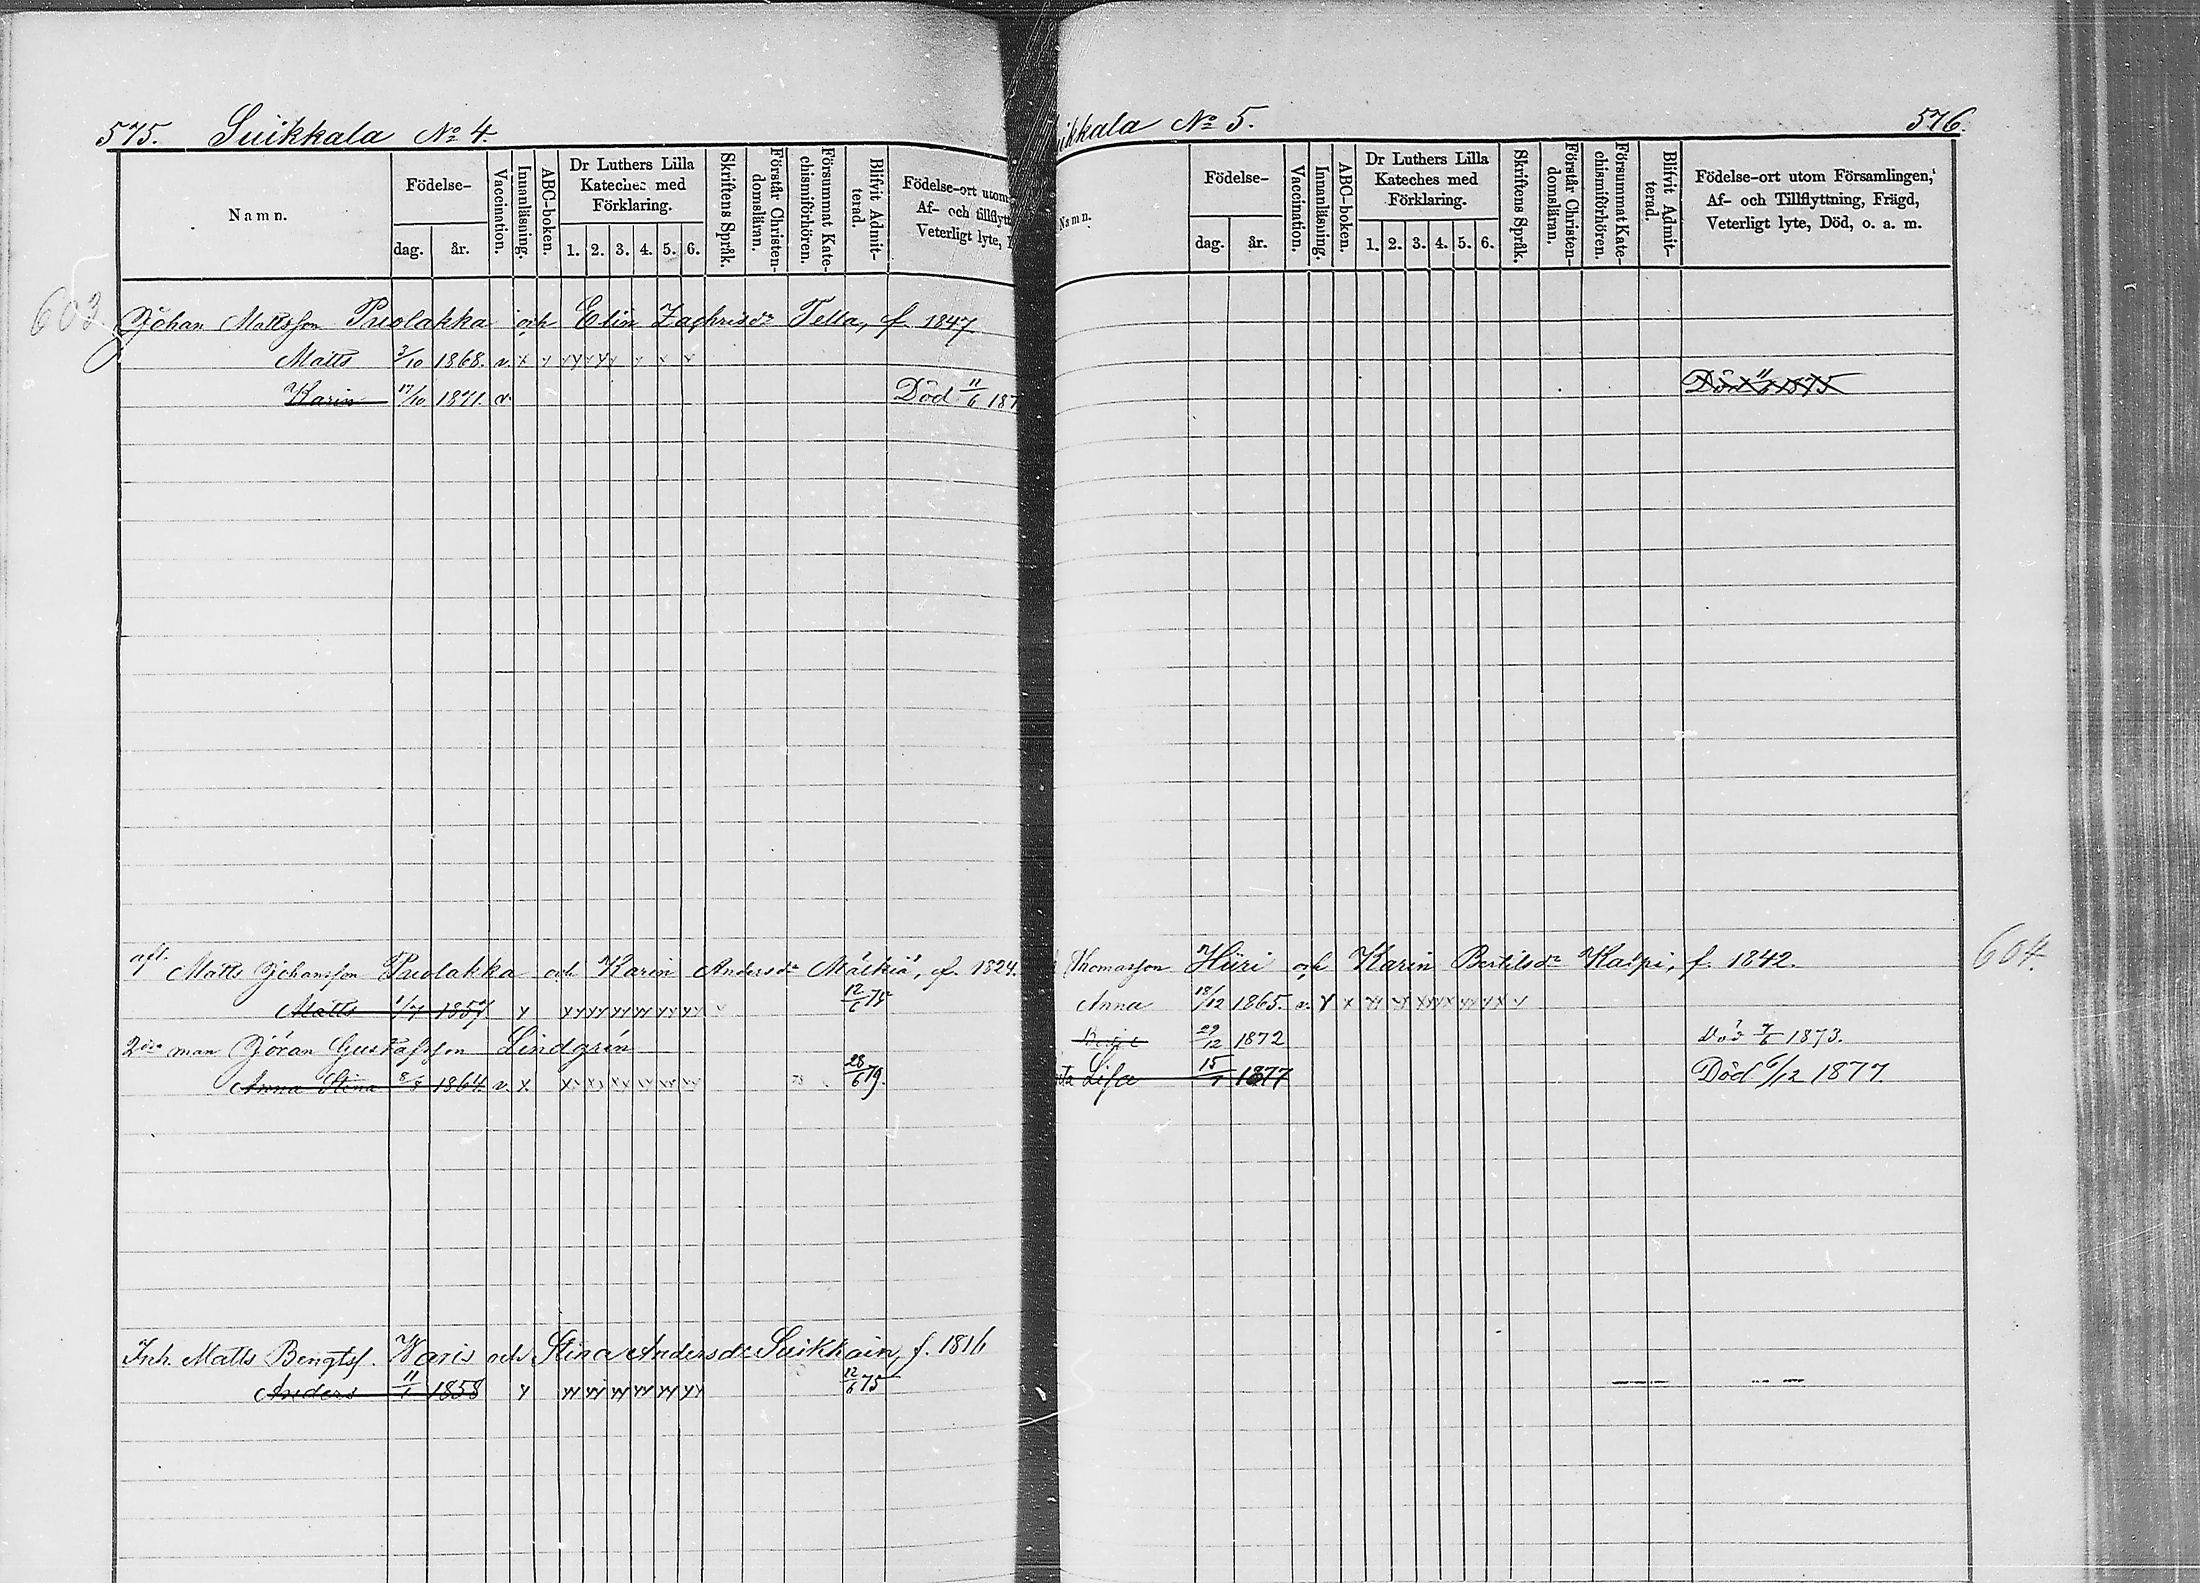 575. Suikkala No 4.
Namn.
Födelse-
dag. år.
Vaccination.
Innanläsning.
ABC-boken.
Dr Luthers Lilla
Kateches med
Förklaring.
1. 2. 3. 4. 5. 6.
Skriftens Språk.
Förstår Christen-
domsläran.
Försummat Kate-
chismiförhören.
Blifvit Admit-
terad.
Födelse-ort utom
Af- och tillflytt
Veterligt lyte,
603
Johan Mattsson Puolakka och Elin Zachrisdr Tella, f. 1847
Matts 3/10 1868. v. x
Karin 17/10 1871. v. Död 11/6 187
Matts Johansson Puolakka och Karin Andersdr Mäckiä, f. 1824.
Matts 1/7 1857. 12/6 75
2dra man Jöran Gustafsson Lindgrén
Anna Stina 8/8 1864. v. x 28/6 79.
Inh. Matts Bengtss. Waris och Stina Andersdr Suikkain, f. 1816
Anders 11/1 1858 12/6 75
ikkala No 5. 576.
Namn.
Födelse-
dag. år.
Vaccination.
Innanläsning.
ABC-boken.
Dr Luthers Lilla
Kateches med
Förklaring.
1. 2. 3. 4. 5. 6.
Skriftens Språk.
Förstår Christen-
domsläran.
Försummat Kate-
chismiförhören.
Blifvit Admit-
terad.
Födelse-ort utom Församlingen,
Af- och Tillflyttning, Frägd,
Veterligt lyte, Död, o. a. m.
Död 11/6 1875
Thomasson Hüri och Karin Bertilsdr Kaspi, f. 1842. 604.
Anna 18/12 1865. v.
29/12 1872 Död 7/6 1873.
Lisa 15/1 1877 Död 6/12 1877.